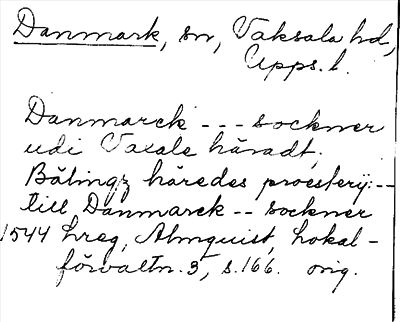 Danmark, sn, Vaksala hd,
Upps. l.
Danmarck --- sockner
udi Vaxale häradt,
Bälingz häredes proesterij: --
till Danmarck -- sockner
1544 hreg, Almquist, Lokal-
förvaltn. 3, s. 166. orig.